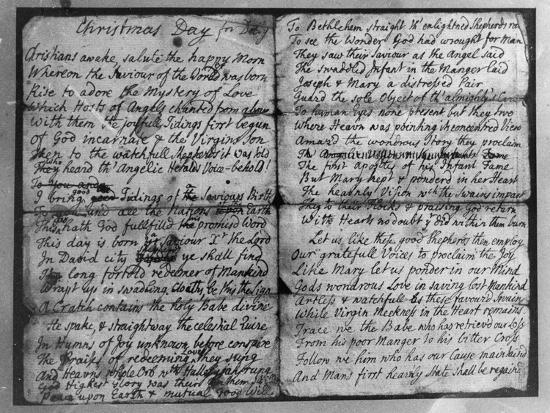 Christmas Day for Dolly
Christians awake, salute the happy Morn
Whereon the Saviour of the World was born
Rise to adore the Mystery of Love
Which Hosts of Angels chanted from above
With them the joyfull Tidings first begun
Of God incarnate & the Virgins Son
Then to the watchfull Shepherds it was told
They heard th' Angelic Heralds Voice behold!
I bring good Tidings of Saviours Birth
To you and all the Nations Earth
This hath God fullfill'd promised Word
This day is born Saviour the Lord
In David city ye shall find
The long foretold redeemer of Mankind
Wrapt up in swadling Cloaths be this the Sign
A Cratch contains the holy Babe divine
He spake, & straightway the celestial Quire
In Hymns of Joy unknown before conspire
The Praises of redeeming Love they sung
And Heav'ns whole Orb wth Hallelujahs rung
God's Highest Glory was their
Peace upon Earth & mutual good Will
To Bethlehem straight th' enlightned Shepherds ran
To see the Wonder God had wrought for Man
They saw their Saviour as the Angel said
The Swaddled Infant in the Manger laid
Joseph & Mary a distressed Pair
Guard the sole Object of th' almighty's Care
To human eyes none present but they two
Where Heavn was pointing its concentred View
Amaz'd the wondrous Story they proclaim
The first Apostles of his Infant Fame
But Mary kept & ponder'd in her Heart
The heav'nly Vision wch the Swains impart
They to their Flocks & praising God return
With Hearts no doubt yt did within them burn
Let us like these good Shepherds then employ
Our gratefull Voices to proclaim the Joy
Like Mary let us ponder in our Mind
Gods wondrous Love in saving lost Mankind
Artless & watchfull as these favour'd Swains
While Virgin Meekness in the Heart remains
Trace we the Babe who has retriev'd our Loss
From his poor Manger to his bitter Cross
Follow we him who has our Cause maintain'd
And Man's first heav'nly State shall be regain'd